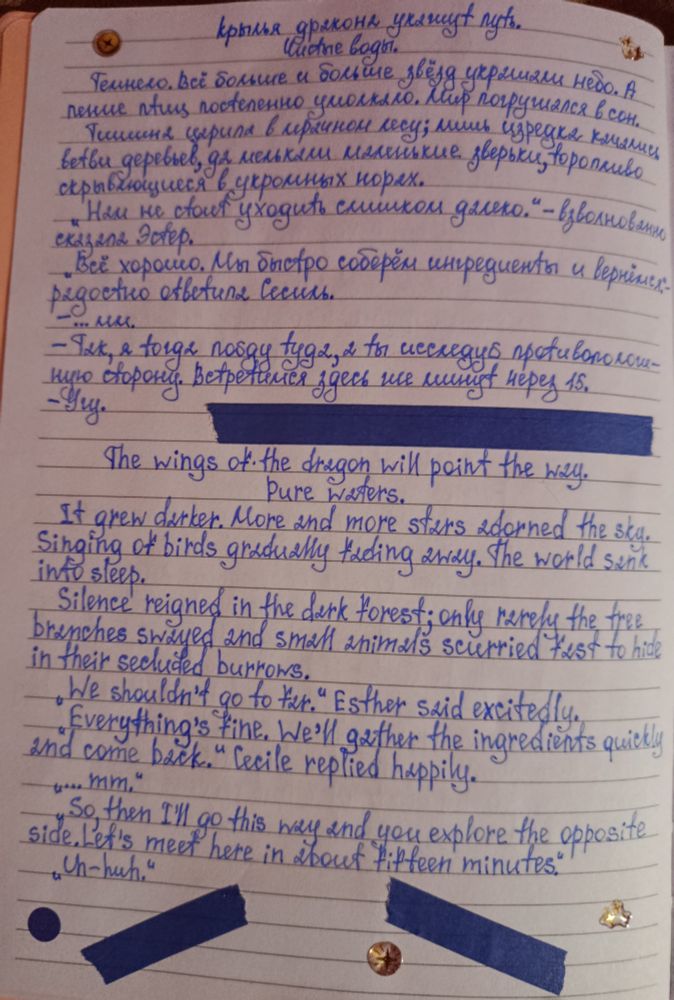 крылья дракона укажут путь.
Чистые воды.
Темнело. Всё больше и больше звёзд украшали небо. А
пение птиц постепенно умолкало. Мир погружался в сон.
Тишина царила в мрачном лесу; лишь изредка качались
ветви деревьев, да мелькали маленькие зверьки, торопливо
скрывающиеся в укромных норах.
„Нам не стоит уходить слишком далеко.“ – взволнованно
сказала Эстер.
„Всё хорошо. Мы быстро соберём ингредиенты и вернёмся.“-
радостно ответила Сесиль.
–... мм.
– Так, я тогда пойду туда, а ты исследуй противополож-
ную сторону. Встретимся здесь же минут через 15.
– Угу.
The wings of the dragon will point the way.
Pure waters.
It grew darker. More and more stars adorned the sky.
Singing of birds gradually fading away. The world sank
into sleep.
Silence reigned in the dark forest; only rarely the tree
branches swayed and small animals scurried fast to hide
in their secluded burrows.
„We shouldn't go to far.“ Esther said excitedly.
„Everything's fine. We'll gather the ingredients quickly
and come back.“ Cecile replied happily.
„... mm.“
„So, then I'll go this way and you explore the opposite
side. Let's meet here in about fifteen minutes.“
„Uh-huh.“